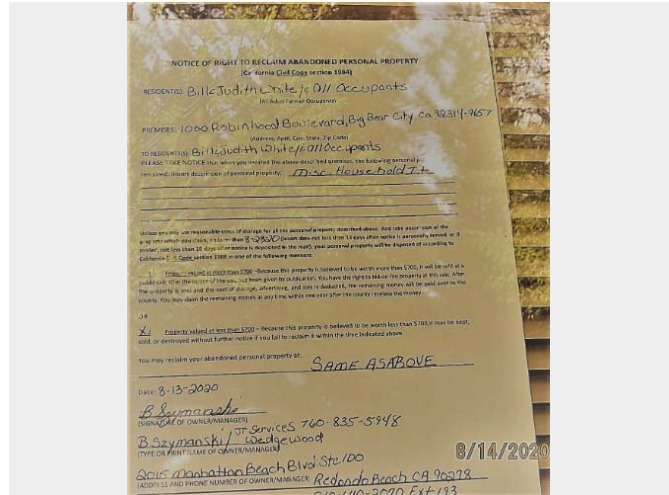 NOTICE OF RIGHT TO RECLAIM ABANDONED PERSONAL PROPERTY
(California Civil Code section 1984)
RESIDENT(S): Bill & Judith White & All Occupants
(All Adult Former Occupants)
PREMISES: 1000 Robinhood Boulevard, Big Bear City, Ca 92314-9657
(Address, Apt#, City, State, Zip Code)
TO RESIDENT(S): Bill & Judith White & All Occupants
PLEASE TAKE NOTICE that when you vacated the above-described premises, the following personal
remained: (insert description of personal property): Misc. Household
Unless you pay reasonable costs of storage for all the personal property described above. And take possession of the
property which you claim, no later than 8-28-20 (insert date not less than 15 days after notice is personally served, or if
mailed, not less than 18 days after notice is deposited in the mail), your personal property will be disposed of according to
California Code section 1988 in one of the following manners.
Property valued at more than $700 - Because this property is believed to be worth more than $700, it will be sold at a
public sale after notice of the sale has been given by publication. You have the right to bid on the property at this sale. After
the property is sold and the cost of storage, advertising, and sale is deducted, the remaining money will be paid over to the
county. You may claim the remaining money at any time within one year after the county receives the money.
OR
X 2 Property valued at less than $700 – Because this property is believed to be worth less than $700, it may be kept,
sold, or destroyed without further notice if you fail to reclaim it within the time indicated above.
You may reclaim your abandoned personal property at: SAME AS ABOVE
Date: 8-13-2020
B Szymanski
(SIGNATURE OF OWNER/MANAGER) Jr Services 760-835-5948
B. Szymanski / Wedgewood
(TYPE OR PRINT NAME OF OWNER/MANAGER)
2015 Manhattan Beach Blvd. Ste 100
(ADDRESS AND PHONE NUMBER OF OWNER/MANAGER) Redondo Beach CA 90278
Ext 193
8/14/2020